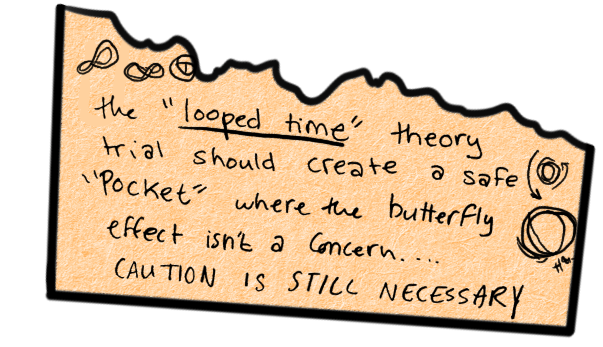 the "looped time" theory
trial should create a safe
"Pocket" where the butterfly
effect isn't a concern....
CAUTION IS STILL NECESSARY